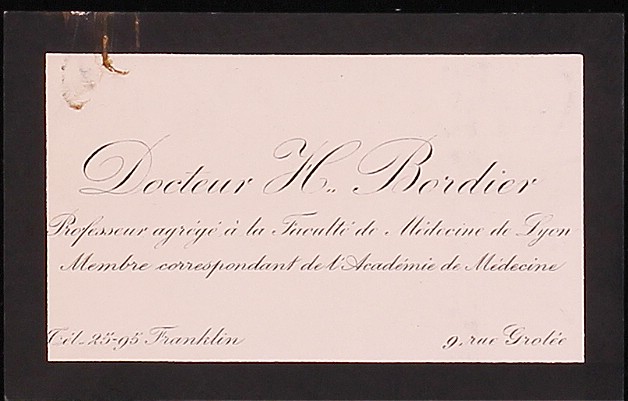 Docteur H. Bordier
Professeur agrégé à la Faculté de Médecine de Lyon
Membre correspondant de l'Académie de Médecine
Tél. 25-95 Franklin
9, rue Grolée